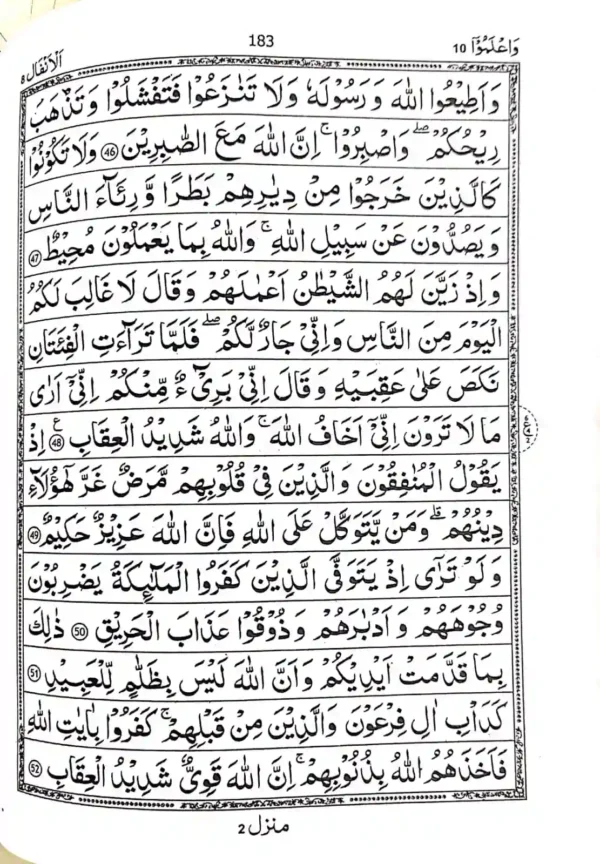 اَلْاَنْفَال 8
183
وَاعْلَمُوْٓا 10
وَاَطِيْعُوا اللّٰهَ وَرَسُوْلَهٗ وَلَا تَنٰزَعُوْا فَتَفْشَلُوْا وَتَذْهَبَ
رِيْحُكُمْ ۖ وَاصْبِرُوْا ۚ اِنَّ اللّٰهَ مَعَ الصّٰبِرِيْنَ ﴿46﴾ وَلَا تَكُوْنُوْا
كَالَّذِيْنَ خَرَجُوْا مِنْ دِيٰرِهِمْ بَطَرًا وَّرِئَآءَ النَّاسِ
وَيَصُدُّوْنَ عَنْ سَبِيْلِ اللّٰهِ ۚ وَاللّٰهُ بِمَا يَعْمَلُوْنَ مُحِيْطٌ ﴿47﴾
وَاِذْ زَيَّنَ لَهُمُ الشَّيْطٰنُ اَعْمٰلَهُمْ وَقَالَ لَا غَالِبَ لَكُمُ
الْيَوْمَ مِنَ النَّاسِ وَاِنِّيْ جَارٌ لَّكُمْ ۖ فَلَمَّا تَرَآءَتِ الْفِئَتَانِ
نَكَصَ عَلٰى عَقِبَيْهِ وَقَالَ اِنِّيْ بَرِيْٓءٌ مِّنْكُمْ اِنِّيْٓ اَرٰى
مَا لَا تَرَوْنَ اِنِّيْٓ اَخَافُ اللّٰهَ ۚ وَاللّٰهُ شَدِيْدُ الْعِقَابِ ﴿48﴾ ع اِذْ
يَقُوْلُ الْمُنٰفِقُوْنَ وَالَّذِيْنَ فِيْ قُلُوْبِهِمْ مَّرَضٌ غَرَّ هٰٓؤُلَآءِ
دِيْنُهُمْ ۗ وَمَنْ يَّتَوَكَّلْ عَلَى اللّٰهِ فَاِنَّ اللّٰهَ عَزِيْزٌ حَكِيْمٌ ﴿49﴾
وَلَوْ تَرٰٓى اِذْ يَتَوَفَّى الَّذِيْنَ كَفَرُوا الْمَلٰٓئِكَةُ يَضْرِبُوْنَ
وُجُوْهَهُمْ وَاَدْبٰرَهُمْ وَذُوْقُوْا عَذَابَ الْحَرِيْقِ ﴿50﴾ ذٰلِكَ
بِمَا قَدَّمَتْ اَيْدِيْكُمْ وَاَنَّ اللّٰهَ لَيْسَ بِظَلّٰمٍ لِّلْعَبِيْدِ ﴿51﴾
كَدَاْبِ اٰلِ فِرْعَوْنَ وَالَّذِيْنَ مِنْ قَبْلِهِمْ ۚ كَفَرُوْا بِاٰيٰتِ اللّٰهِ
فَاَخَذَهُمُ اللّٰهُ بِذُنُوْبِهِمْ ۚ اِنَّ اللّٰهَ قَوِيٌّ شَدِيْدُ الْعِقَابِ ﴿52﴾
منزل 2